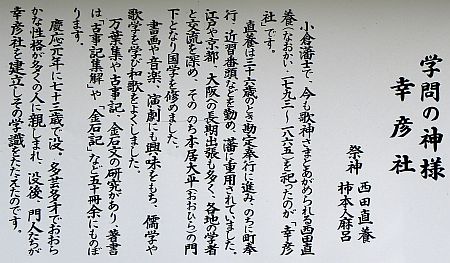 学問の神様
幸彦社
祭神 西田直養
柿本人麻呂
小倉藩士で、今も歌神さまとあがめられる西田直
養(なおかい・一七九三〜一八六五)を祀ったのが「幸彦
社」です。
直養は三十六歳のとき勘定奉行に進み、のちに町奉
行、近習番頭などを勤め、藩に重用されていました。
江戸や京都、大阪への長期出張も多く、各地の学者
と交流を深め、そののち本居大平(おおひら)の門
下となり国学を修めました。
書画や音楽、演劇にも興味をもち、儒学や
歌学を学び和歌をよくしました。
万葉集や古事記、金石文の研究があり、著書
は「古事記集解」や、「金石記」など五十冊余にものぼ
ります。
慶応元年に七十三歳で没。多芸多才でおおら
かな性格が多くの人に親しまれ、没後、門人たちが
幸彦社を建立しその学識をたたえたのです。